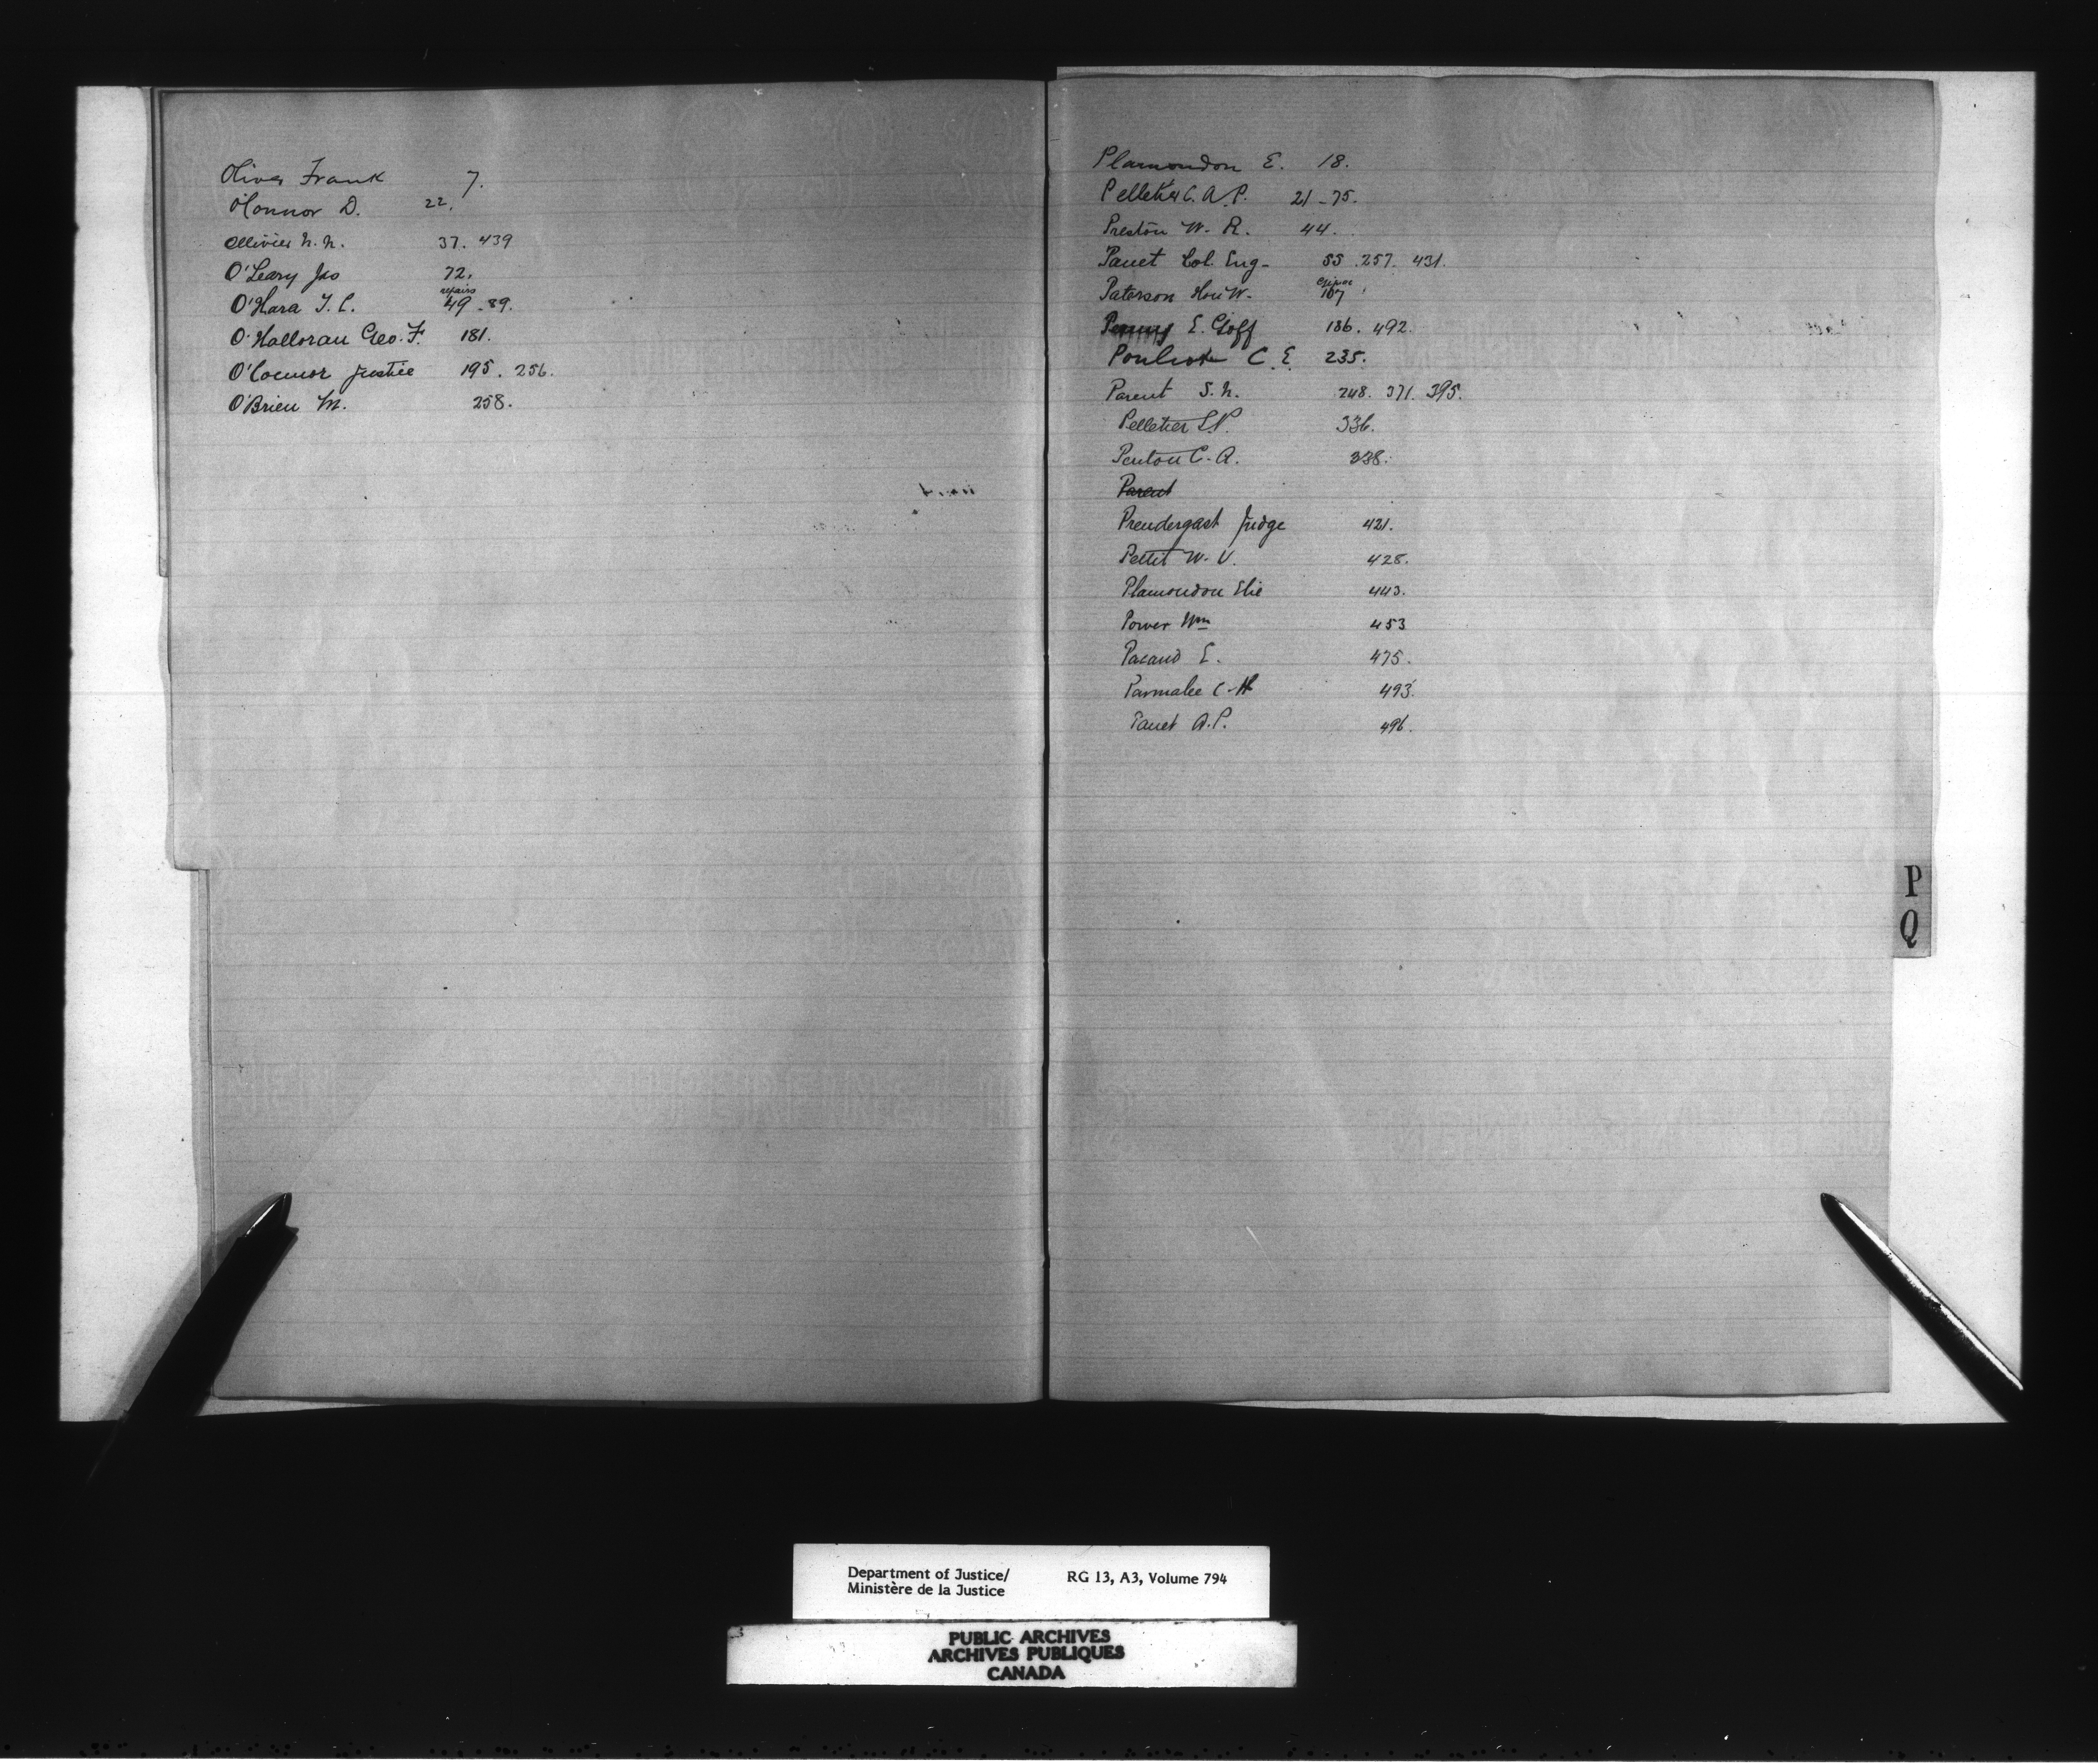 Oliver Frank 7.
O'Connor D. 22.
Ollivier N. N. 37. 439
O'Leary Jno 72.
repairs
O'Hara F. C. 49 - 89.
O'Halloran Geo. F. 181.
O'Connor Justice 195. 256.
O'Brien M. 258.
Plamondon E. 18.
Pelletier C. A. P. 21 - 75.
Preston W. R. 44.
Panet Col. Eug- 55. 257. 431.
Paterson Hon W. 107
E. Goff 186. 492.
Pouliot C. E. 235.
Parent S. N. 248. 371. 395.
Pelletier L.P. 336.
Penton C. A. 338.
Parent
Prendergast Judge 421.
Pettit W. V. 428.
Plamondon Elie 443.
Power Wm 453
Pacaud E. 475.
Parmalee C. H 493.
Panet A. P. 496.
P
Q
Department of Justice/ RG 13, A3, Volume 794
Ministère de la Justice
PUBLIC ARCHIVES
ARCHIVES PUBLIQUES
CANADA